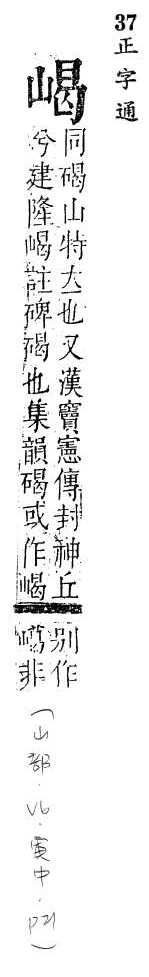 37正字通
嵑
同碣山特立也又漢竇憲傳封神丘
兮建隆嵑註碑碣也集韻碣或作嵑
別作
嶱非
(山部.V6.寅中.P21)